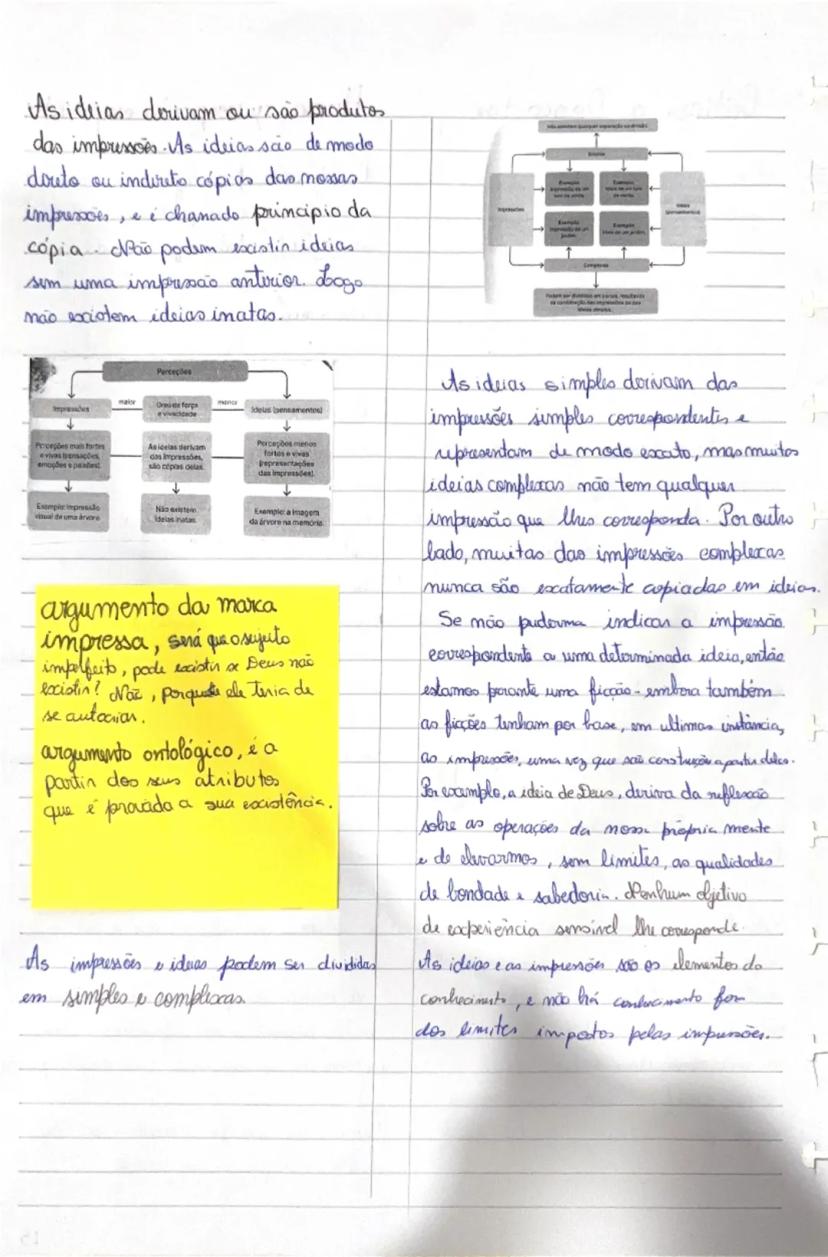 As ideias derivam ou são produtos
das impressões. As ideias são de modo
direto ou indireto cópias das nossas
impressões, e é chamado princípio da
cópia. Não podem existir ideias
sem uma impressão anterior. Logo
não existem ideias inatas.
Perceções
Impressões
maior
Grau de força
e vivacidade
menor
Ideias (pensamentos)
Perceções mais fortes
e vivas (sensações,
emoções e paixões).
As ideias derivam
das impressões,
são cópias delas.
Perceções menos
fortes e vivas
(representações
das impressões).
Exemplo: impressão
visual de uma árvore.
Não existem
ideias inatas.
Exemplo: a imagem
da árvore na memória.
argumento da marca
impressa, será que o sujeito
imperfeito, pode existir se Deus não
existir? Não, porque ele teria de
se autocriar.
argumento ontológico, é a
partir dos seus atributos
que é provada a sua existência.
As impressões e ideias podem ser divididas
em simples e complexas.
Não admitem qualquer separação ou divisão.
Simples
Impressões
Exemplo:
impressão de um
tom de verde.
Exemplo:
ideia de um tom
de verde.
Ideias
(pensamentos)
Exemplo:
impressão de um
jardim.
Exemplo:
ideia de um jardim.
Complexas
Podem ser divididas em partes, resultando
da combinação das impressões ou das
ideias simples.
As ideias simples derivam das
impressões simples correspondentes e
representam de modo exato, mas muitas
ideias complexas não tem qualquer
impressão que lhes corresponda. Por outro
lado, muitas das impressões complexas
nunca são exatamente copiadas em ideias.
Se não pudermos indicar a impressão
correspondente a uma determinada ideia, então
estamos perante uma ficção - embora também
as ficções tenham por base, em ultima instância,
as impressões, uma vez que são construções a partir delas.
Por exemplo, a ideia de Deus, deriva da reflexão
sobre as operações da nossa própria mente
e de elevarmos, sem limites, as qualidades
de bondade e sabedoria. Nenhum objetivo
de experiência sensível lhe corresponde.
As ideias e as impressões são os elementos do
conhecimento, e não há conhecimento fora
dos limites impostos pelas impressões.